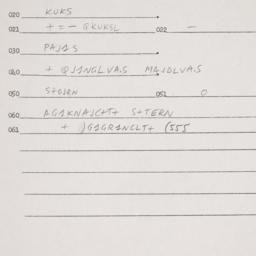 020 KUKS
021 + = - QKUKSL 022 -
030 PAJ1S
040 + QJ1NGLVA.S MAJOLVA.S
050 S+OJRN 051 0
060 AG1KNAJC+T+ S+TERN
061 + JG1GR1NCLT+ (555